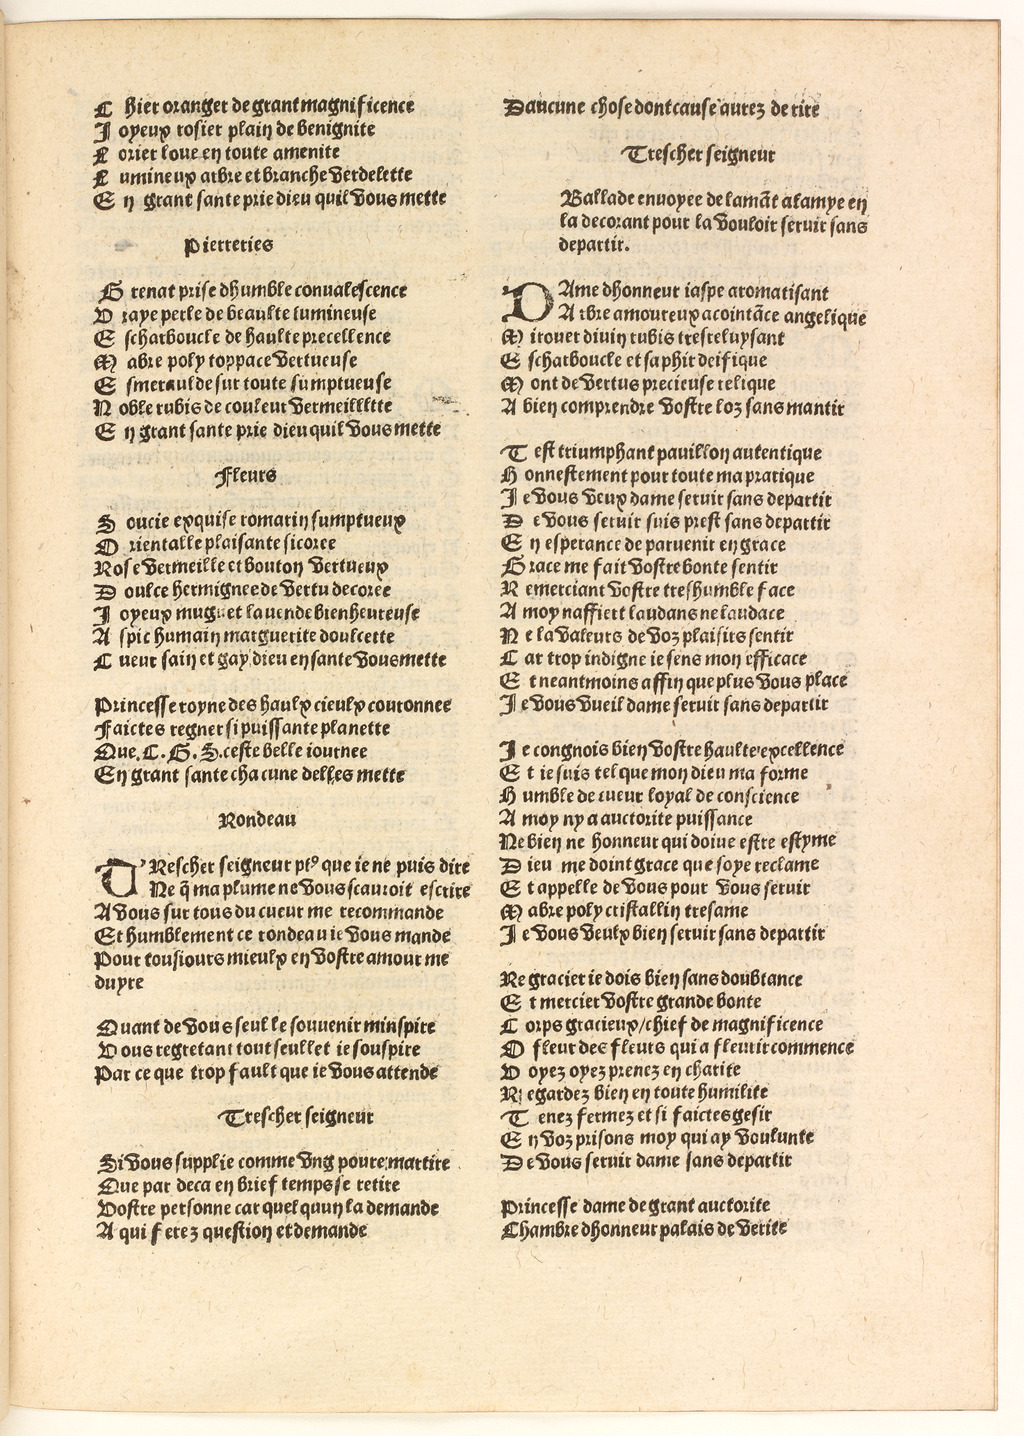 C hier oranger de grant magnificence
J oyeux rosier plain de benignite
L orier loue en toute amenite
L umineux arbre et branche verdelette
E n grant sante prie dieu quil vous mette
Pierreries
G renat prise dhumble conualescence
V raye perle de beaulte lumineuse
E scharboucle de haulte precellence
M abre poly toppace vertueuse
E smeraulde sur toute sumptueuse
N oble rubis de couleur vermeilllette
E n grant sante prie dieu quil vous mette
Fleurs
S oucie exquise romarin sumptueux
O rientalle plaisante sicoree
Rose vermeille et bouton vertueux
D oulce hermignee de vertu decoree
J oyeux muguet lauende bienheureuse
A spic humain marguerite doulcette
C ueur sain et gay dieu en sante vous mette
Princesse royne des haulx cieulx couronnee
Faictes regner si puissante planette
Que. C. G. S. ceste belle iournee
En grant sante chacune delles mette
Rondeau
TRescher seigneur ptꝰ que ie ne puis dire
Ne q̃ ma plume ne vous scauroit escrire
A vous sur tous du cueur me recommande
Et humblement ce rondeau ie vous mande
Pour tousiours mieulx en vostre amour me
duyre
Quant de vous seul le souuenir minspire
Vous regretant tout seullet ie souspire
Par ce que trop fault que ie vous attende
Trescher seigneur
Si vous supplie comme vng poure martire
Que par deca en brief temps se retire
Vostre personne car quelquun la demande
A qui ferez question et demande
Daucune chose dont cause aurez de rire
Trescher seigneur
Ballade enuoyee de lamāt a lamye en
la decorant pour la vouloir seruir sans
departir.
DAme dhonneur iaspe aromatisant
Arbre amoureux acointāce angelique
M irouer diuin rubis tresreluysant
E scharboucle et saphir deifique
M ont de vertus precieuse relique
A bien comprendre vostre loz sans mantir
T est triumphant pauillon autentique
H onnestement pour toute ma pratique
J e vous veux dame seruir sans departir
D e vous seruir suis prest sans departir
E n esperance de paruenir en grace
G race me fait vostre bonte sentir
R emerciant vostre treshumble face
A moy naffiert laudans ne laudace
N e la valeurs de voz plaisirs sentir
C ar trop indigne ie sens mon efficace
E t neantmoins affin que plus vous place
J e vous vueil dame seruir sans departir
J e congnois bien vostre haulte excellence
E t ie suis tel que mon dieu ma forme
H umble de cueur loyal de conscience
A moy ny a auctorite puissance
Ne bien ne honneur qui doiue estre estyme
D ieu me doint grace que soye reclame
E t appelle de vous pour vous seruir
M abre poly cristallin tresame
J e vous veulx bien seruir sans departir
Re gracier ie dois bien sans doubtance
E t mercier vostre grande bonte
C orps gracieux/chief de magnificence
O fleur des fleurs qui a fleurir commence
V oyez oyez prenez en charite
R egardez bien en toute humilite
T enez fermez et si faictes gesir
E n voz prisons moy qui ay voulunte
De vous seruir dame sans departir
Princesse dame de grant auctorite
Chambre dhonneur palais de verite